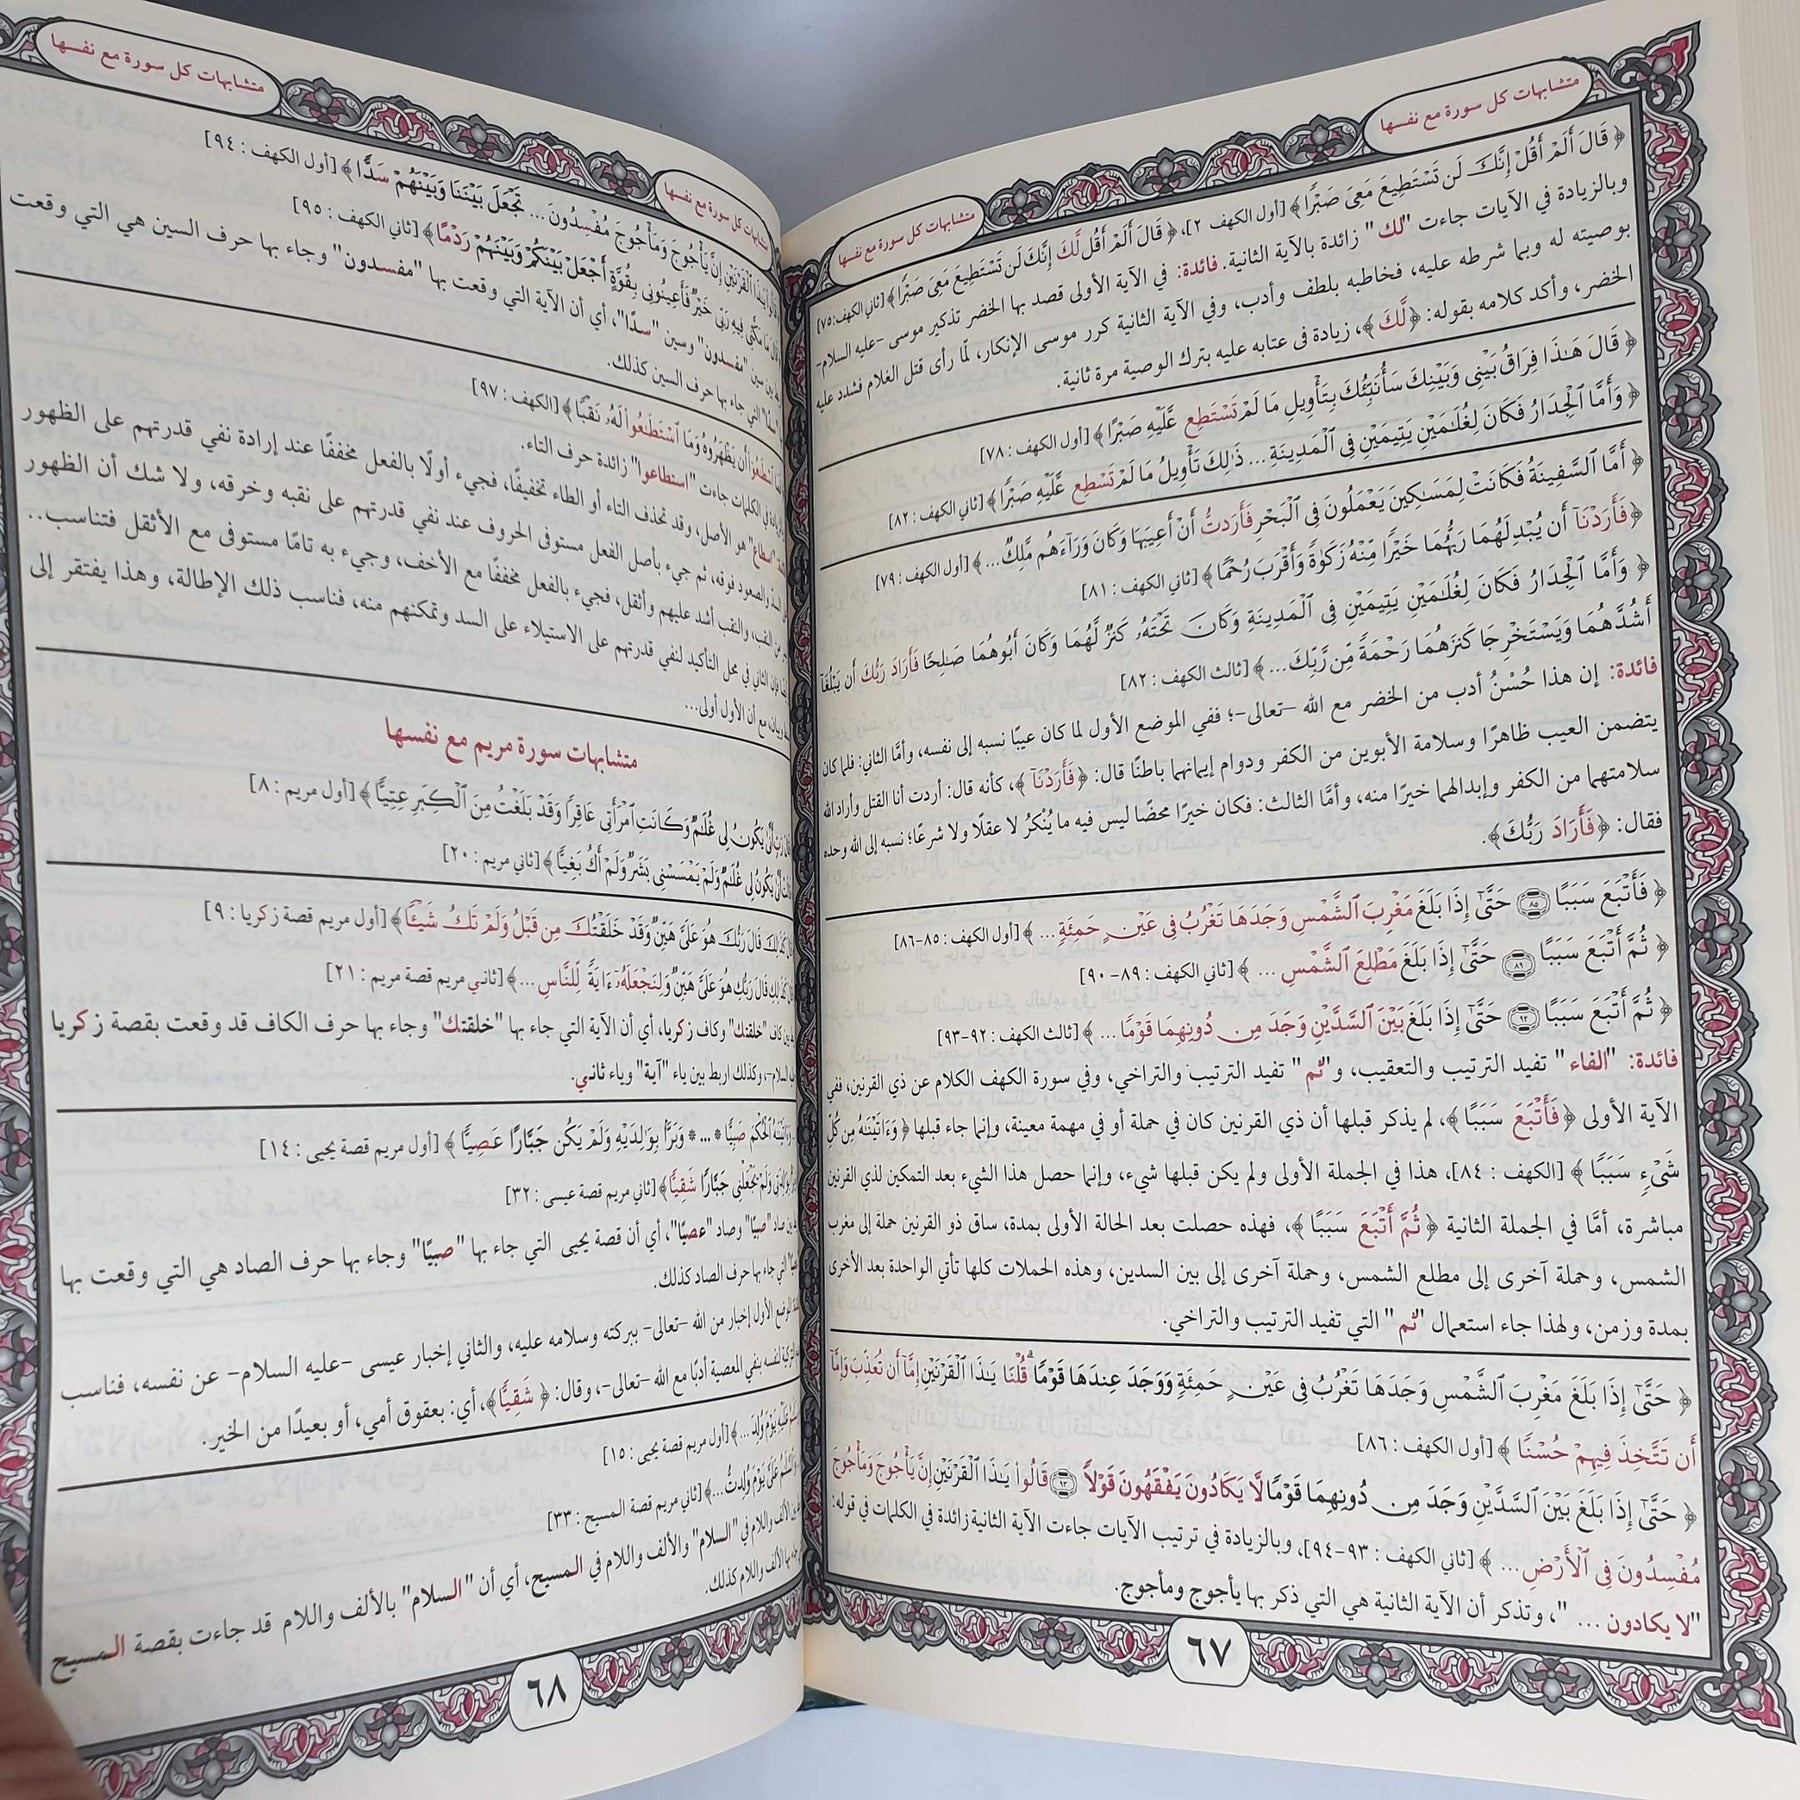 متشابهات كل سورة مع نفسها
متشابهات كل سورة مع نفسها
﴿ قَالَ أَلَمْ أَقُلْ إِنَّكَ لَن تَسْتَطِيعَ مَعِىَ صَبْرًا ﴾ [أول الكهف ٢]، ﴿ قَالَ أَلَمْ أَقُل لَّكَ إِنَّكَ لَن تَسْتَطِيعَ مَعِىَ صَبْرًا ﴾ [ثاني الكهف: ٧٥]
وبالزيادة في الآيات جاءت "لك" زائدة بالآية الثانية. فائدة: في الآية الأولى قصد بها الخضر تذكير موسى -عليه السلام-
بوصيته له وبما شرطه عليه، فخاطبه بلطف وأدب، وفي الآية الثانية كرر موسى الإنكار، لمّا رأى قتل الغلام فشدد عليه
الخضر، وأكد كلامه بقوله: ﴿لَّكَ﴾، زيادة فى عتابه عليه بترك الوصية مرة ثانية.
﴿ قَالَ هَـٰذَا فِرَاقُ بَيْنِى وَبَيْنِكَ سَأُنَبِّئُكَ بِتَأْوِيلِ مَا لَمْ تَسْتَطِع عَّلَيْهِ صَبْرًا ﴾ [أول الكهف : ٧٨]
﴿ وَأَمَّا ٱلْجِدَارُ فَكَانَ لِغُلَـٰمَيْنِ يَتِيمَيْنِ فِى ٱلْمَدِينَةِ ... ذَٰلِكَ تَأْوِيلُ مَا لَمْ تَسْطِع عَّلَيْهِ صَبْرًا ﴾ [ثاني الكهف : ٨٢]
﴿ أَمَّا ٱلسَّفِينَةُ فَكَانَتْ لِمَسَـٰكِينَ يَعْمَلُونَ فِى ٱلْبَحْرِ فَأَرَدتُّ أَنْ أَعِيبَهَا وَكَانَ وَرَآءَهُم مَّلِكٌ... ﴾ [أول الكهف : ٧٩]
﴿ فَأَرَدْنَآ أَن يُبْدِلَهُمَا رَبُّهُمَا خَيْرًا مِّنْهُ زَكَوٰةً وَأَقْرَبَ رُحْمًا ﴾ [ثاني الكهف : ٨١]
﴿ وَأَمَّا ٱلْجِدَارُ فَكَانَ لِغُلَـٰمَيْنِ يَتِيمَيْنِ فِى ٱلْمَدِينَةِ وَكَانَ تَحْتَهُۥ كَنزٌ لَّهُمَا وَكَانَ أَبُوهُمَا صَـٰلِحًا فَأَرَادَ رَبُّكَ أَن يَبْلُغَآ
أَشُدَّهُمَا وَيَسْتَخْرِجَا كَنزَهُمَا رَحْمَةً مِّن رَّبِّكَ... ﴾ [ثالث الكهف : ٨٢]
فائدة: إن هذا حُسْنُ أدب من الخضر مع الله -تعالى-؛ ففي الموضع الأول لما كان عيبًا نسبه إلى نفسه، وأمَّا الثاني: فلما كان
يتضمن العيب ظاهرًا وسلامة الأبوين من الكفر ودوام إيمانهما باطنًا قال: ﴿فَأَرَدْنَآ ﴾، كأنه قال: أردت أنا القتل وأراد الله
سلامتهما من الكفر وإبدالهما خيرًا منه، وأمَّا الثالث: فكان خيرًا محضًا ليس فيه ما يُنْكرُ لا عقلًا ولا شرعًا؛ نسبه إلى الله وحده
فقال: ﴿فَأَرَادَ رَبُّكَ﴾.
﴿ فَأَتْبَعَ سَبَبًا ٨٥ حَتَّىٰٓ إِذَا بَلَغَ مَغْرِبَ ٱلشَّمْسِ وَجَدَهَا تَغْرُبُ فِى عَيْنٍ حَمِئَةٍ ... ﴾ [أول الكهف : ٨٥-٨٦]
﴿ ثُمَّ أَتْبَعَ سَبَبًا ٨٩ حَتَّىٰٓ إِذَا بَلَغَ مَطْلِعَ ٱلشَّمْسِ ... ﴾ [ثاني الكهف : ٨٩- ٩٠]
﴿ ثُمَّ أَتْبَعَ سَبَبًا ٩٢ حَتَّىٰٓ إِذَا بَلَغَ بَيْنَ ٱلسَّدَّيْنِ وَجَدَ مِن دُونِهِمَا قَوْمًا ... ﴾ [ثالث الكهف : ٩٢-٩٣]
فائدة: "الفاء " تفيد الترتيب والتعقيب، و"ثم " تفيد الترتيب والتراخي، وفي سورة الكهف الكلام عن ذي القرنين، ففي
الآية الأولى ﴿فَأَتْبَعَ سَبَبًا ﴾، لم يذكر قبلها أن ذي القرنين كان في حملة أو في مهمة معينة، وإنما جاء قبلها ﴿ وَءَاتَيْنَـٰهُ مِن كُلِّ
شَىْءٍ سَبَبًا ﴾ [الكهف : ٨٤]، هذا في الجملة الأولى ولم يكن قبلها شيء، وإنما حصل هذا الشيء بعد التمكين لذي القرنين
مباشرة، أمَّا في الجملة الثانية ﴿ ثُمَّ أَتْبَعَ سَبَبًا ﴾، فهذه حصلت بعد الحالة الأولى بمدة، ساق ذو القرنين حملة إلى مغرب
الشمس، وحملة آخرى إلى مطلع الشمس، وحملة آخرى إلى بين السدين، وهذه الحملات كلها تأتي الواحدة بعد الأخرى
بمدة وزمن، ولهذا جاء استعمال "ثم " التي تفيد الترتيب والتراخي.
﴿ حَتَّىٰٓ إِذَا بَلَغَ مَغْرِبَ ٱلشَّمْسِ وَجَدَهَا تَغْرُبُ فِى عَيْنٍ حَمِئَةٍ وَوَجَدَ عِندَهَا قَوْمًا ۗ قُلْنَا يَـٰذَا ٱلْقَرْنَيْنِ إِمَّآ أَن تُعَذِّبَ وَإِمَّآ
أَن تَتَّخِذَ فِيهِمْ حُسْنًا ﴾ [أول الكهف : ٨٦]
﴿ حَتَّىٰٓ إِذَا بَلَغَ بَيْنَ ٱلسَّدَّيْنِ وَجَدَ مِن دُونِهِمَا قَوْمًا لَّا يَكَادُونَ يَفْقَهُونَ قَوْلًا ٩٣ قَالُوا۟ يَـٰذَا ٱلْقَرْنَيْنِ إِنَّ يَأْجُوجَ وَمَأْجُوجَ
مُفْسِدُونَ فِى ٱلْأَرْضِ... ﴾ [ثاني الكهف : ٩٣-٩٤]، وبالزيادة في ترتيب الآيات جاءت الآية الثانية زائدة في الكلمات في قوله:
"لا يكادون ... "، وتذكر أن الآية الثانية هي التي ذكر بها يأجوج ومأجوج.
٦٧
متشابهات كل سورة مع نفسها
متشابهات كل سورة مع نفسها
ٱلْقَرْنَيْنِ إِنَّ يَأْجُوجَ وَمَأْجُوجَ مُفْسِدُونَ... تَجْعَلَ بَيْنَنَا وَبَيْنَهُمْ سَدًّا ﴾ [أول الكهف : ٩٤]
مَا مَكَّنِّى فِيهِ رَبِّى خَيْرٌ فَأَعِينُونِى بِقُوَّةٍ أَجْعَلْ بَيْنَكُمْ وَبَيْنَهُمْ رَدْمًا﴾ [ثاني الكهف : ٩٥]
بين سين "مفسدون" وسين "سدًا"، أي أن الآية التي وقعت بها "مفسدون" وجاء بها حرف السين هي التي وقعت
التي جاء بها حرف السين كذلك.
ٱسْطَـٰعُوٓا۟ أَن يَظْهَرُوهُ وَمَا ٱسْتَطَـٰعُوا۟ لَهُۥ نَقْبًا﴾ [الكهف : ٩٧]
في الكلمات جاءت "استطاعوا" زائدة حرف التاء.
"اسطاع" هو الأصل، وقد تحذف التاء أو الطاء تخفيفًا، فجيء أولًا بالفعل مخففًا عند إرادة نفي قدرتهم على الظهور
والصعود فوقه، ثم جيء بأصل الفعل مستوفى الحروف عند نفي قدرتهم على نقبه وخرقه، ولا شك أن الظهور
من النقب، والنقب أشد عليهم وأثقل، فجيء بالفعل مخففًا مع الأخف، وجيء به تامًا مستوفى مع الأثقل فتناسب..
فإن الثاني في محل التأكيد لنفي قدرتهم على الاستيلاء على السد وتمكنهم منه، فناسب ذلك الإطالة، وهذا يفتقر إلى
بيانه، مع أن الأول أولى...
متشابهات سورة مريم مع نفسها
رَبِّ أَنَّىٰ يَكُونُ لِى غُلَـٰمٌ وَكَانَتِ ٱمْرَأَتِى عَاقِرًا وَقَدْ بَلَغْتُ مِنَ ٱلْكِبَرِ عِتِيًّا ﴾ [أول مريم : ٨]
أَنَّىٰ يَكُونُ لِى غُلَـٰمٌ وَلَمْ يَمْسَسْنِى بَشَرٌ وَلَمْ أَكُ بَغِيًّا ﴾ [ثاني مريم : ٢٠]
كَذَٰلِكَ قَالَ رَبُّكَ هُوَ عَلَىَّ هَيِّنٌ وَقَدْ خَلَقْتُكَ مِن قَبْلُ وَلَمْ تَكُ شَيْـًٔا﴾ [أول مريم قصة زكريا : ٩]
كَذَٰلِكِ قَالَ رَبُّكِ هُوَ عَلَىَّ هَيِّنٌ وَلِنَجْعَلَهُۥٓ ءَايَةً لِّلنَّاسِ ...﴾ [ثاني مريم قصة مريم : ٢١]
بين كاف "خلقتك" وكاف زكريا، أي أن الآية التي جاء بها "خلقتك" وجاء بها حرف الكاف قد وقعت بقصة زكريا
السلام-، وكذلك اربط بين ياء "آية" وياء ثاني.
وَءَاتَيْنَـٰهُ ٱلْحُكْمَ صَبِيًّا * ... * وَبَرًّۢا بِوَٰلِدَيْهِ وَلَمْ يَكُن جَبَّارًا عَصِيًّا ﴾ [أول مريم قصة يحيى : ١٤]
بِوَٰلِدَتِى وَلَمْ يَجْعَلْنِى جَبَّارًا شَقِيًّا﴾ [ثاني مريم قصة عيسى : ٣٢]
بين صاد "صبيًا" وصاد "عصيًا"، أي أن قصة يحيى التي جاء بها "صبيًا" وجاء بها حرف الصاد هي التي وقعت بها
التي جاء بها حرف الصاد كذلك.
الموضع الأول إخبار من الله -تعالى- ببركته وسلامه عليه، والثاني إخبار عيسى -عليه السلام- عن نفسه، فناسب
التزكية لنفسه بنفي المعصية أدبًا مع الله -تعالى-، وقال: ﴿ شَقِيًّا﴾، أي: بعقوق أمي، أو بعيدًا من الخير.
عَلَيْهِ يَوْمَ وُلِدَ ...﴾ [أول مريم قصة يحيى : ١٥]
وَٱلسَّلَـٰمُ عَلَىَّ يَوْمَ وُلِدتُّ ...﴾ [ثاني مريم قصة المسيح : ٣٣]
الألف واللام في "السلام" والألف واللام في المسيح، أي أن "السلام" بالألف واللام قد جاءت بقصة المسيح
جاء بها الألف واللام كذلك.
٦٨